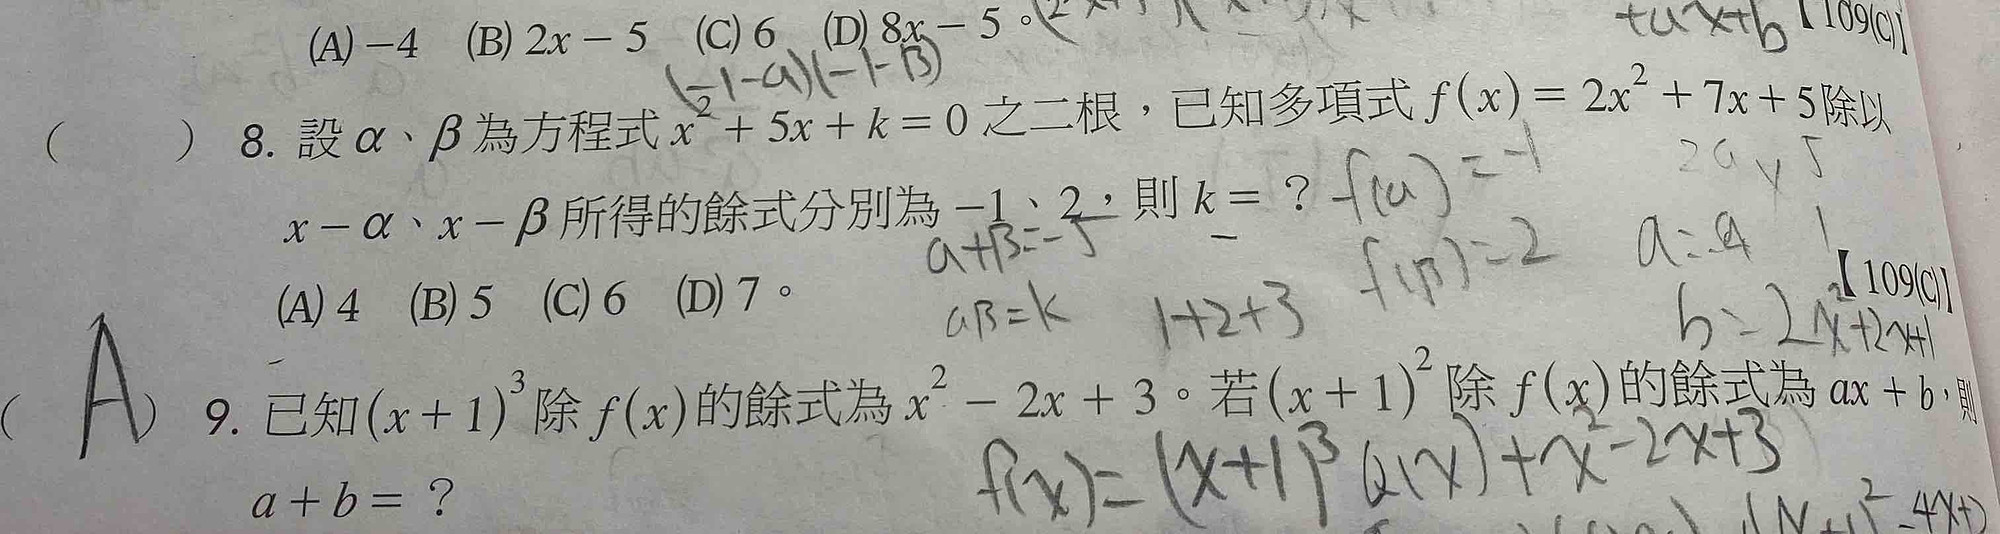 (A) −4 (B) 2x − 5 (C) 6 (D) 8x − 5。
+ax+b 【109(C)】
(-1-α)(-1-β)
( ) 8. 設 α、β 為方程式 x² + 5x + k = 0 之二根，已知多項式 f(x) = 2x² + 7x + 5 除以
x − α、x − β 所得的餘式分別為 −1、2，則 k = ？ f(α) = -1
α+β=-5 f(β)=2 a=-4
(A) 4 (B) 5 (C) 6 (D) 7。 【109(C)】
αβ=k 1+2+3 b=2 x²+2x+1
(A) 9. 已知 (x + 1)³ 除 f(x) 的餘式為 x² − 2x + 3。若 (x + 1)² 除 f(x) 的餘式為 ax + b，則
f(x)=(x+1)³Q(x)+x²-2x+3
a + b = ？